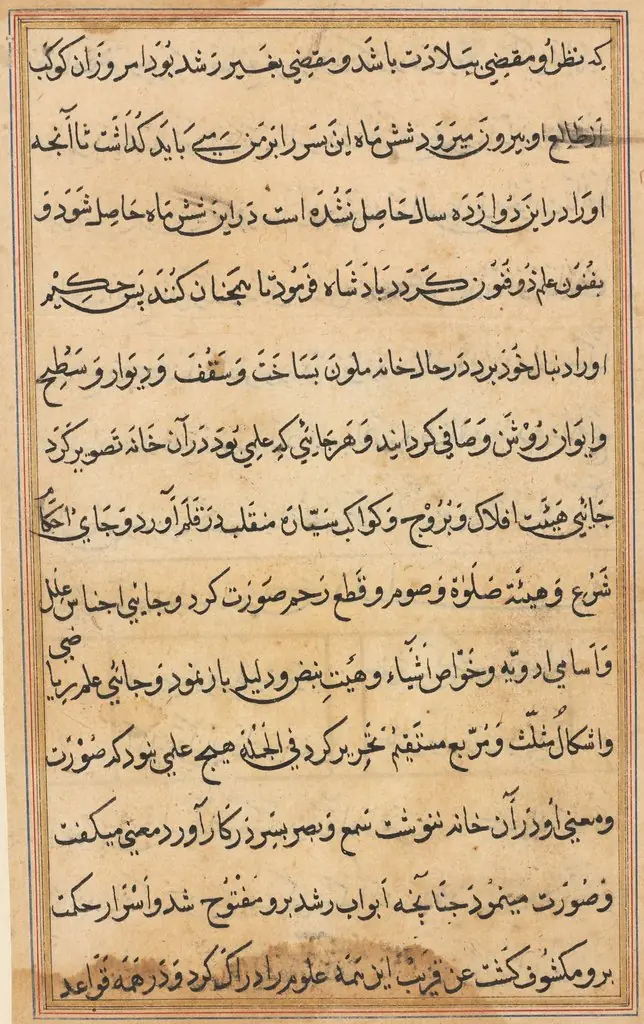 که نظر او مقضِي ببلادَت باشَد و مقضِي بغَير رَشد بُوَد امروز آن کوکَب
از طالع او بیرون میرَوَد شش مَاه این پسر را بَر مَن مي بَاید کُذاشت تا آنجه
او را در این دُوازدَه سال حَاصِل نَشُدَه است دَر این شش مَاه حَاصِل شَوَد وَ
بفُنُون علم ذُوفنُون کَردَد بَادشَاه فَرمُود تا همجنان کُنَند پَس حَکِیم
او را دنبال خُود برد دَر حال خانه ملون بسَاخَت وَ سَقف وَ دِیوار وَ سَطح
و ایوان رُوشَن وَ صَافي کردانید وَ هَر جَائي که علمي بُوَد دَر آن خَانه تَصویر کَرد
جَائي هَیئَت افلاک وَ بُرُوج وَ کواکب سَیّارَه منقلب دَر قلَم آوَرد وَ جَاي احکام
شَرع وَ هیئَة صَلوٰة وَ صوم و قَطع رَحم صوَرَت کرد و جائي اجناس علَل
وَ اَسَامي ادویّه وَ خَوَاص اَشیَاء و هَیئَتِ نبض و دلیل باز نمود وَ جَائي علم رِیاضي
و اشکالُ مُثلّث وَ مُرّبع مستَقیمُ تحَرِیر کرد في الجُملَة هیج علمي نبود که صُوَرَت
و معني اُو دَر آن خانه ننوَشت سَمع وَ بصر بسَر دَر کار آورد معني میکفت
وَ صُوَرَت مینمُود جنَانجه اَبواب رشد برو مَفتُوح شد و اَسرَار حکمَت
برو مکشُوف کشت عن قریب این همَه علوم را ادراک کرد وَ در هَمَه قوَاعد